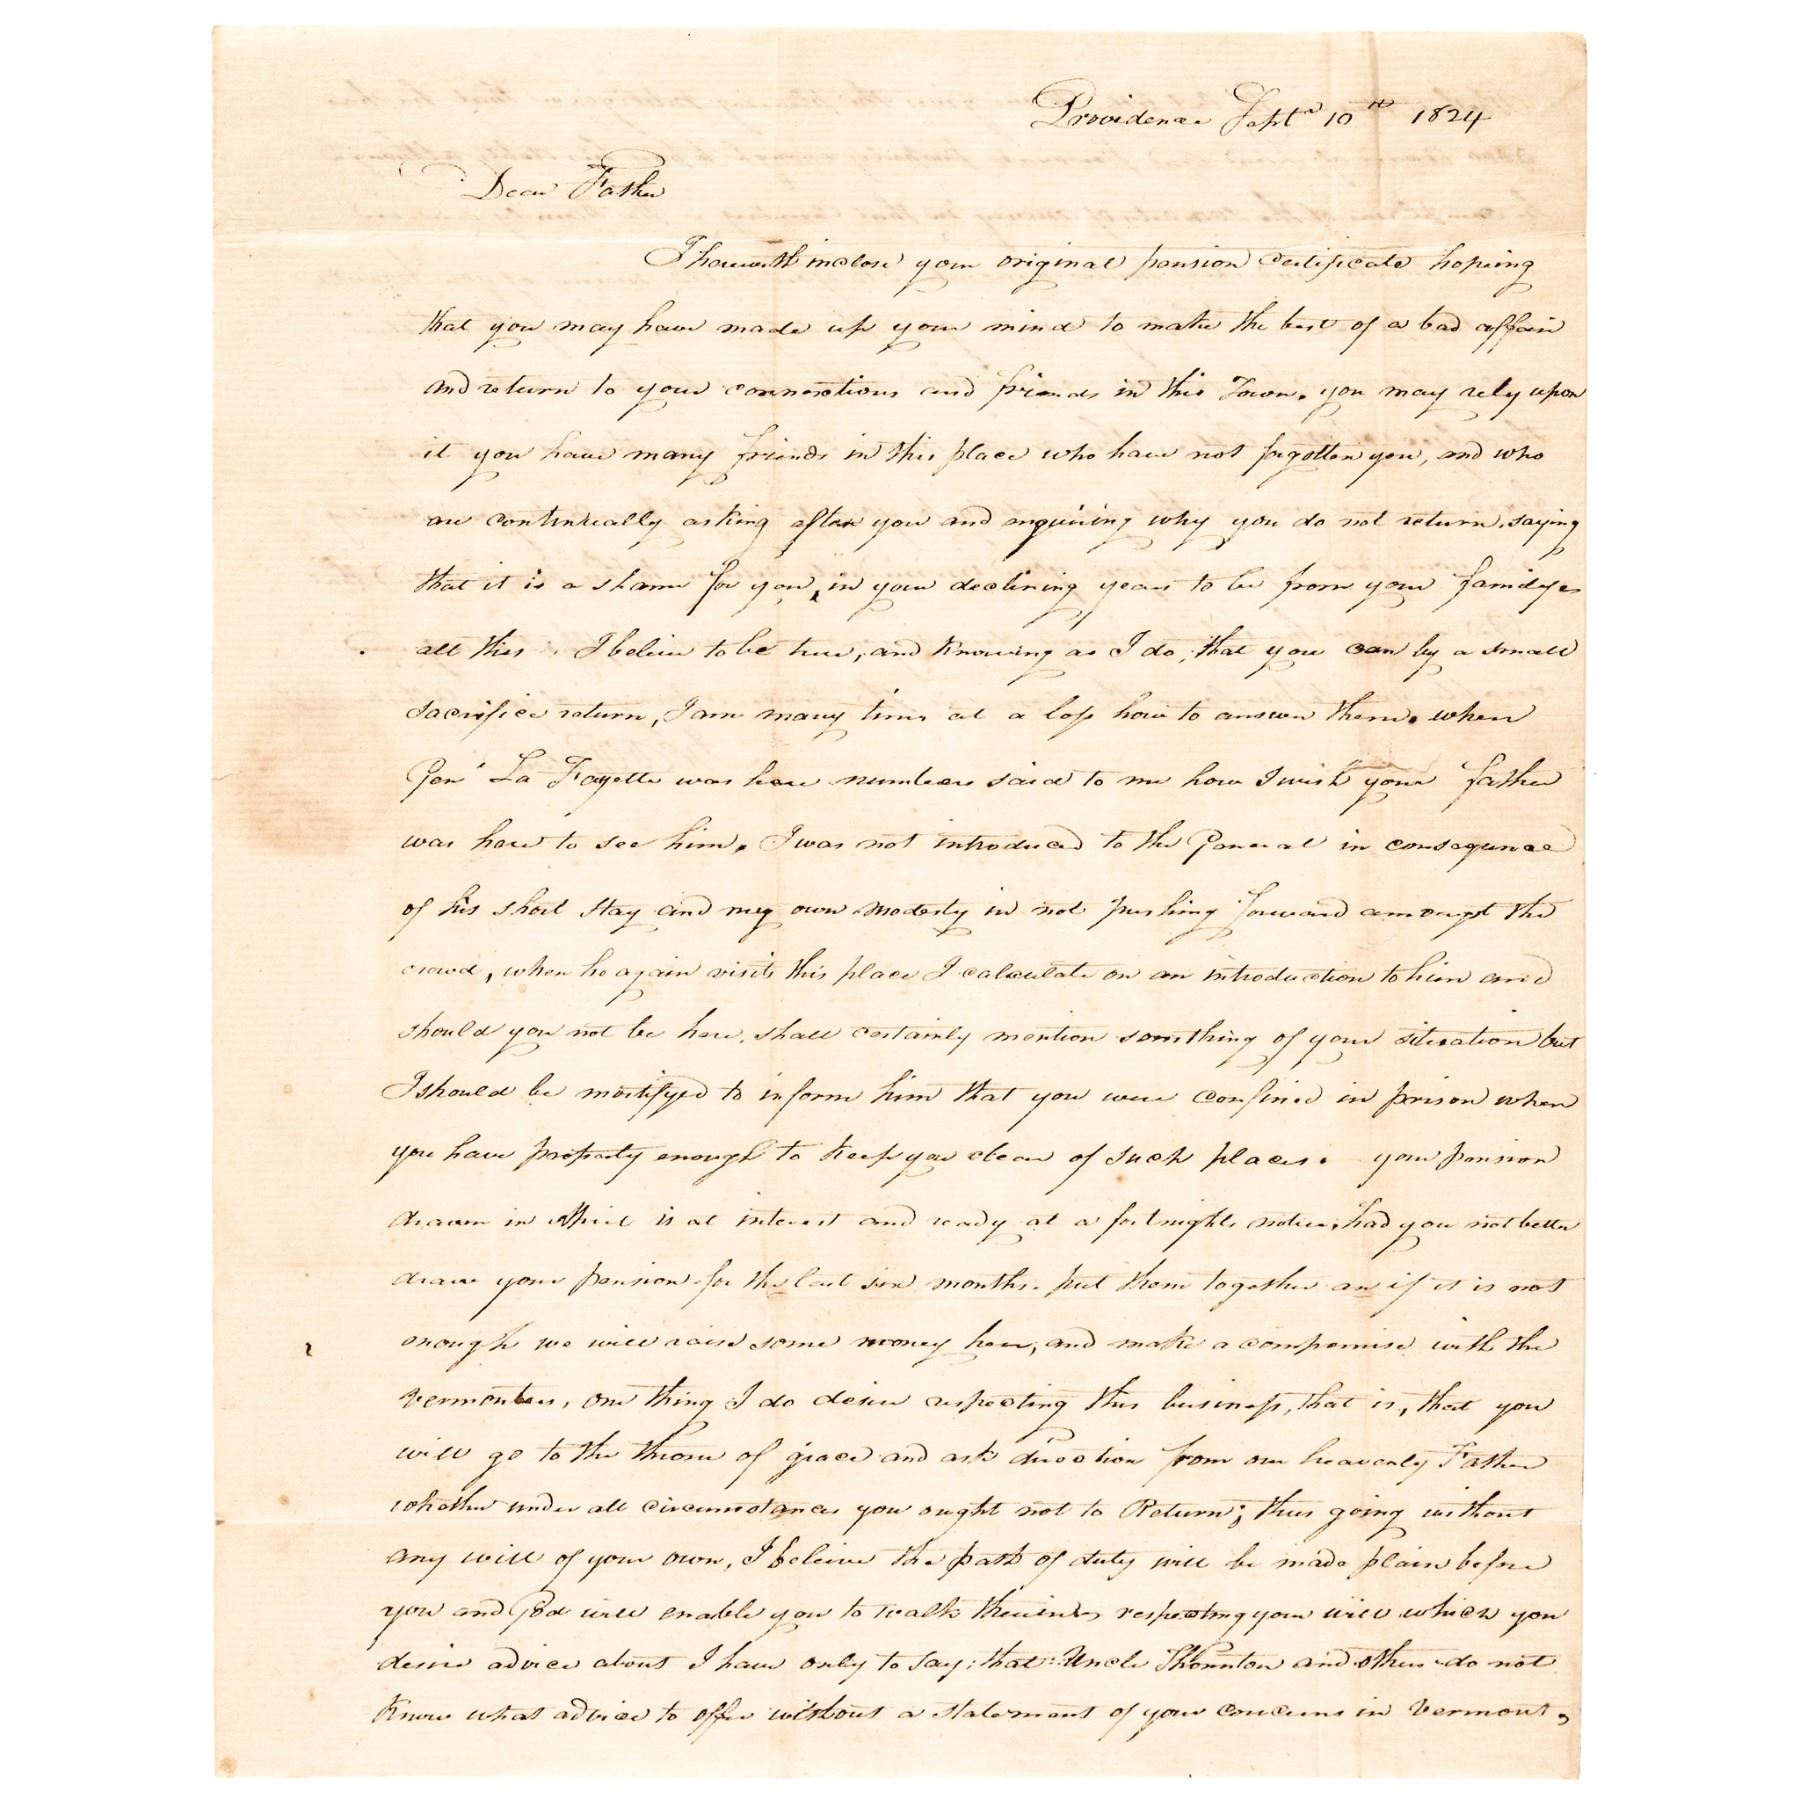 Providence Septr 10th 1824
Dear Father
I herewith inclose your original pension certificate hoping
that you may have made up your mind to make the best of a bad affair
and return to your connections and friends in this Town. you may rely upon
it you have many friends in this place who have not forgotten you, and who
are continually asking after you and enquiring why you do not return, saying
that it is a shame for you, in your declining years to be from your family
all this I believe to be true, and knowing as I do, that you can by a small
sacrifice return, I am many times at a loss how to answer them. when
Genl La Fayette was here numbers said to me how I wish your father
was here to see him. I was not introduced to the General in consequence
of his short stay and my own modesty in not pushing forward amongst the
crowd, when he again visits this place I calculate on an introduction to him and
should you not be here, shall certainly mention something of your situation but
I should be mortifyed to inform him that you were confined in prison when
you have property enough to keep you clear of such places. your pension
drawn in April is at interest and ready at a fortnights notice, had you not better
draw your pension for the last six months. put them together an if it is not
enough we will raise some money here, and make a compromise with the
vermonters, one thing I do desire respecting this business, that is, that you
will go to the throne of grace and ask direction from our heavenly Father
whether under all circumstances you ought not to Return; thus going without
any will of your own, I beleive the path of duty will be made plain before
you and God will enable you to walk therein, respecting your will which you
desire advice about I have only to say: that: Uncle Thornton and others do not
know what advice to offer without a statement of your concerns in vermont,